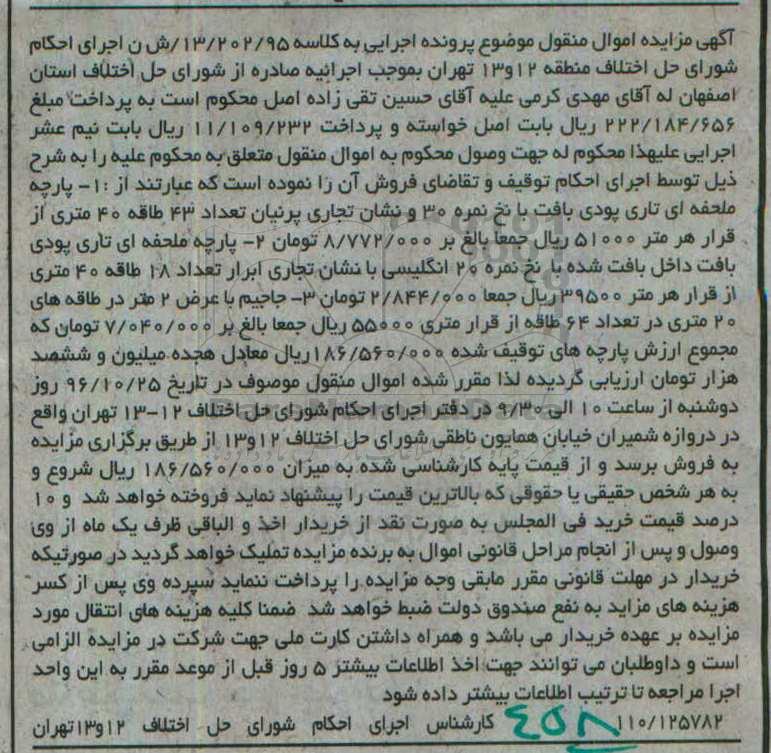 آگهی مزایده اموال منقول موضوع پرونده اجرایی به کلاسه ۱۳/۲۰۲/۹۵/ش ن اجرای احکام
شورای حل اختلاف منطقه ۱۲و۱۳ تهران بموجب اجرائیه صادره از شورای حل اختلاف استان
اصفهان له آقای مهدی کرمی علیه آقای حسین تقی زاده اصل محکوم است به پرداخت مبلغ
۲۲۲/۱۸۴/۶۵۶ ریال بابت اصل خواسته و پرداخت ۱۱/۱۰۹/۲۳۲ ریال بابت نیم عشر
اجرایی علیهذا محکوم له جهت وصول محکوم به اموال منقول متعلق به محکوم علیه را به شرح
ذیل توسط اجرای احکام توقیف و تقاضای فروش آن را نموده است که عبارتند از :۱- پارچه
ملحفه ای تاری پودی بافت با نخ نمره ۳۰ و نشان تجاری پرنیان تعداد ۴۳ طاقه ۴۰ متری از
قرار هر متر ۵۱۰۰۰ ریال جمعا بالغ بر ۸/۷۷۲/۰۰۰ تومان ۲- پارچه ملحفه ای تاری پودی
بافت داخل بافت شده با نخ نمره ۲۰ انگلیسی با نشان تجاری ابرار تعداد ۱۸ طاقه ۴۰ متری
از قرار هر متر ۳۹۵۰۰ ریال جمعا ۲/۸۴۴/۰۰۰ تومان ۳- جاجیم با عرض ۲ متر در طاقه های
۲۰ متری در تعداد ۶۴ طاقه از قرار متری ۵۵۰۰۰ ریال جمعا بالغ بر ۷/۰۴۰/۰۰۰ تومان که
مجموع ارزش پارچه های توقیف شده ۱۸۶/۵۶۰/۰۰۰ریال معادل هجده میلیون و ششصد
هزار تومان ارزیابی گردیده لذا مقرر شده اموال منقول موصوف در تاریخ ۹۶/۱۰/۲۵ روز
دوشنبه از ساعت ۱۰ الی ۹/۳۰ در دفتر اجرای احکام شورای حل اختلاف ۱۲-۱۳ تهران واقع
در دروازه شمیران خیابان همایون ناطقی شورای حل اختلاف ۱۲و۱۳ از طریق برگزاری مزایده
به فروش برسد و از قیمت پایه کارشناسی شده به میزان ۱۸۶/۵۶۰/۰۰۰ ریال شروع و
به هر شخص حقیقی یا حقوقی که بالاترین قیمت را پیشنهاد نماید فروخته خواهد شد و ۱۰
درصد قیمت خرید فی المجلس به صورت نقد از خریدار اخذ و الباقی ظرف یک ماه از وی
وصول و پس از انجام مراحل قانونی اموال به برنده مزایده تملیک خواهد گردید در صورتیکه
خریدار در مهلت قانونی مقرر مابقی وجه مزایده را پرداخت ننماید سپرده وی پس از کسر
هزینه های مزاید به نفع صندوق دولت ضبط خواهد شد ضمنا کلیه هزینه های انتقال مورد
مزایده بر عهده خریدار می باشد و همراه داشتن کارت ملی جهت شرکت در مزایده الزامی
است و داوطلبان می توانند جهت اخذ اطلاعات بیشتز ۵ روز قبل از موعد مقرر به این واحد
اجرا مراجعه تا ترتیب اطلاعات بیشتر داده شود
۱۱۰/۱۲۵۷۸۲ کارشناس اجرای احکام شورای حل اختلاف ۱۲و۱۳تهران